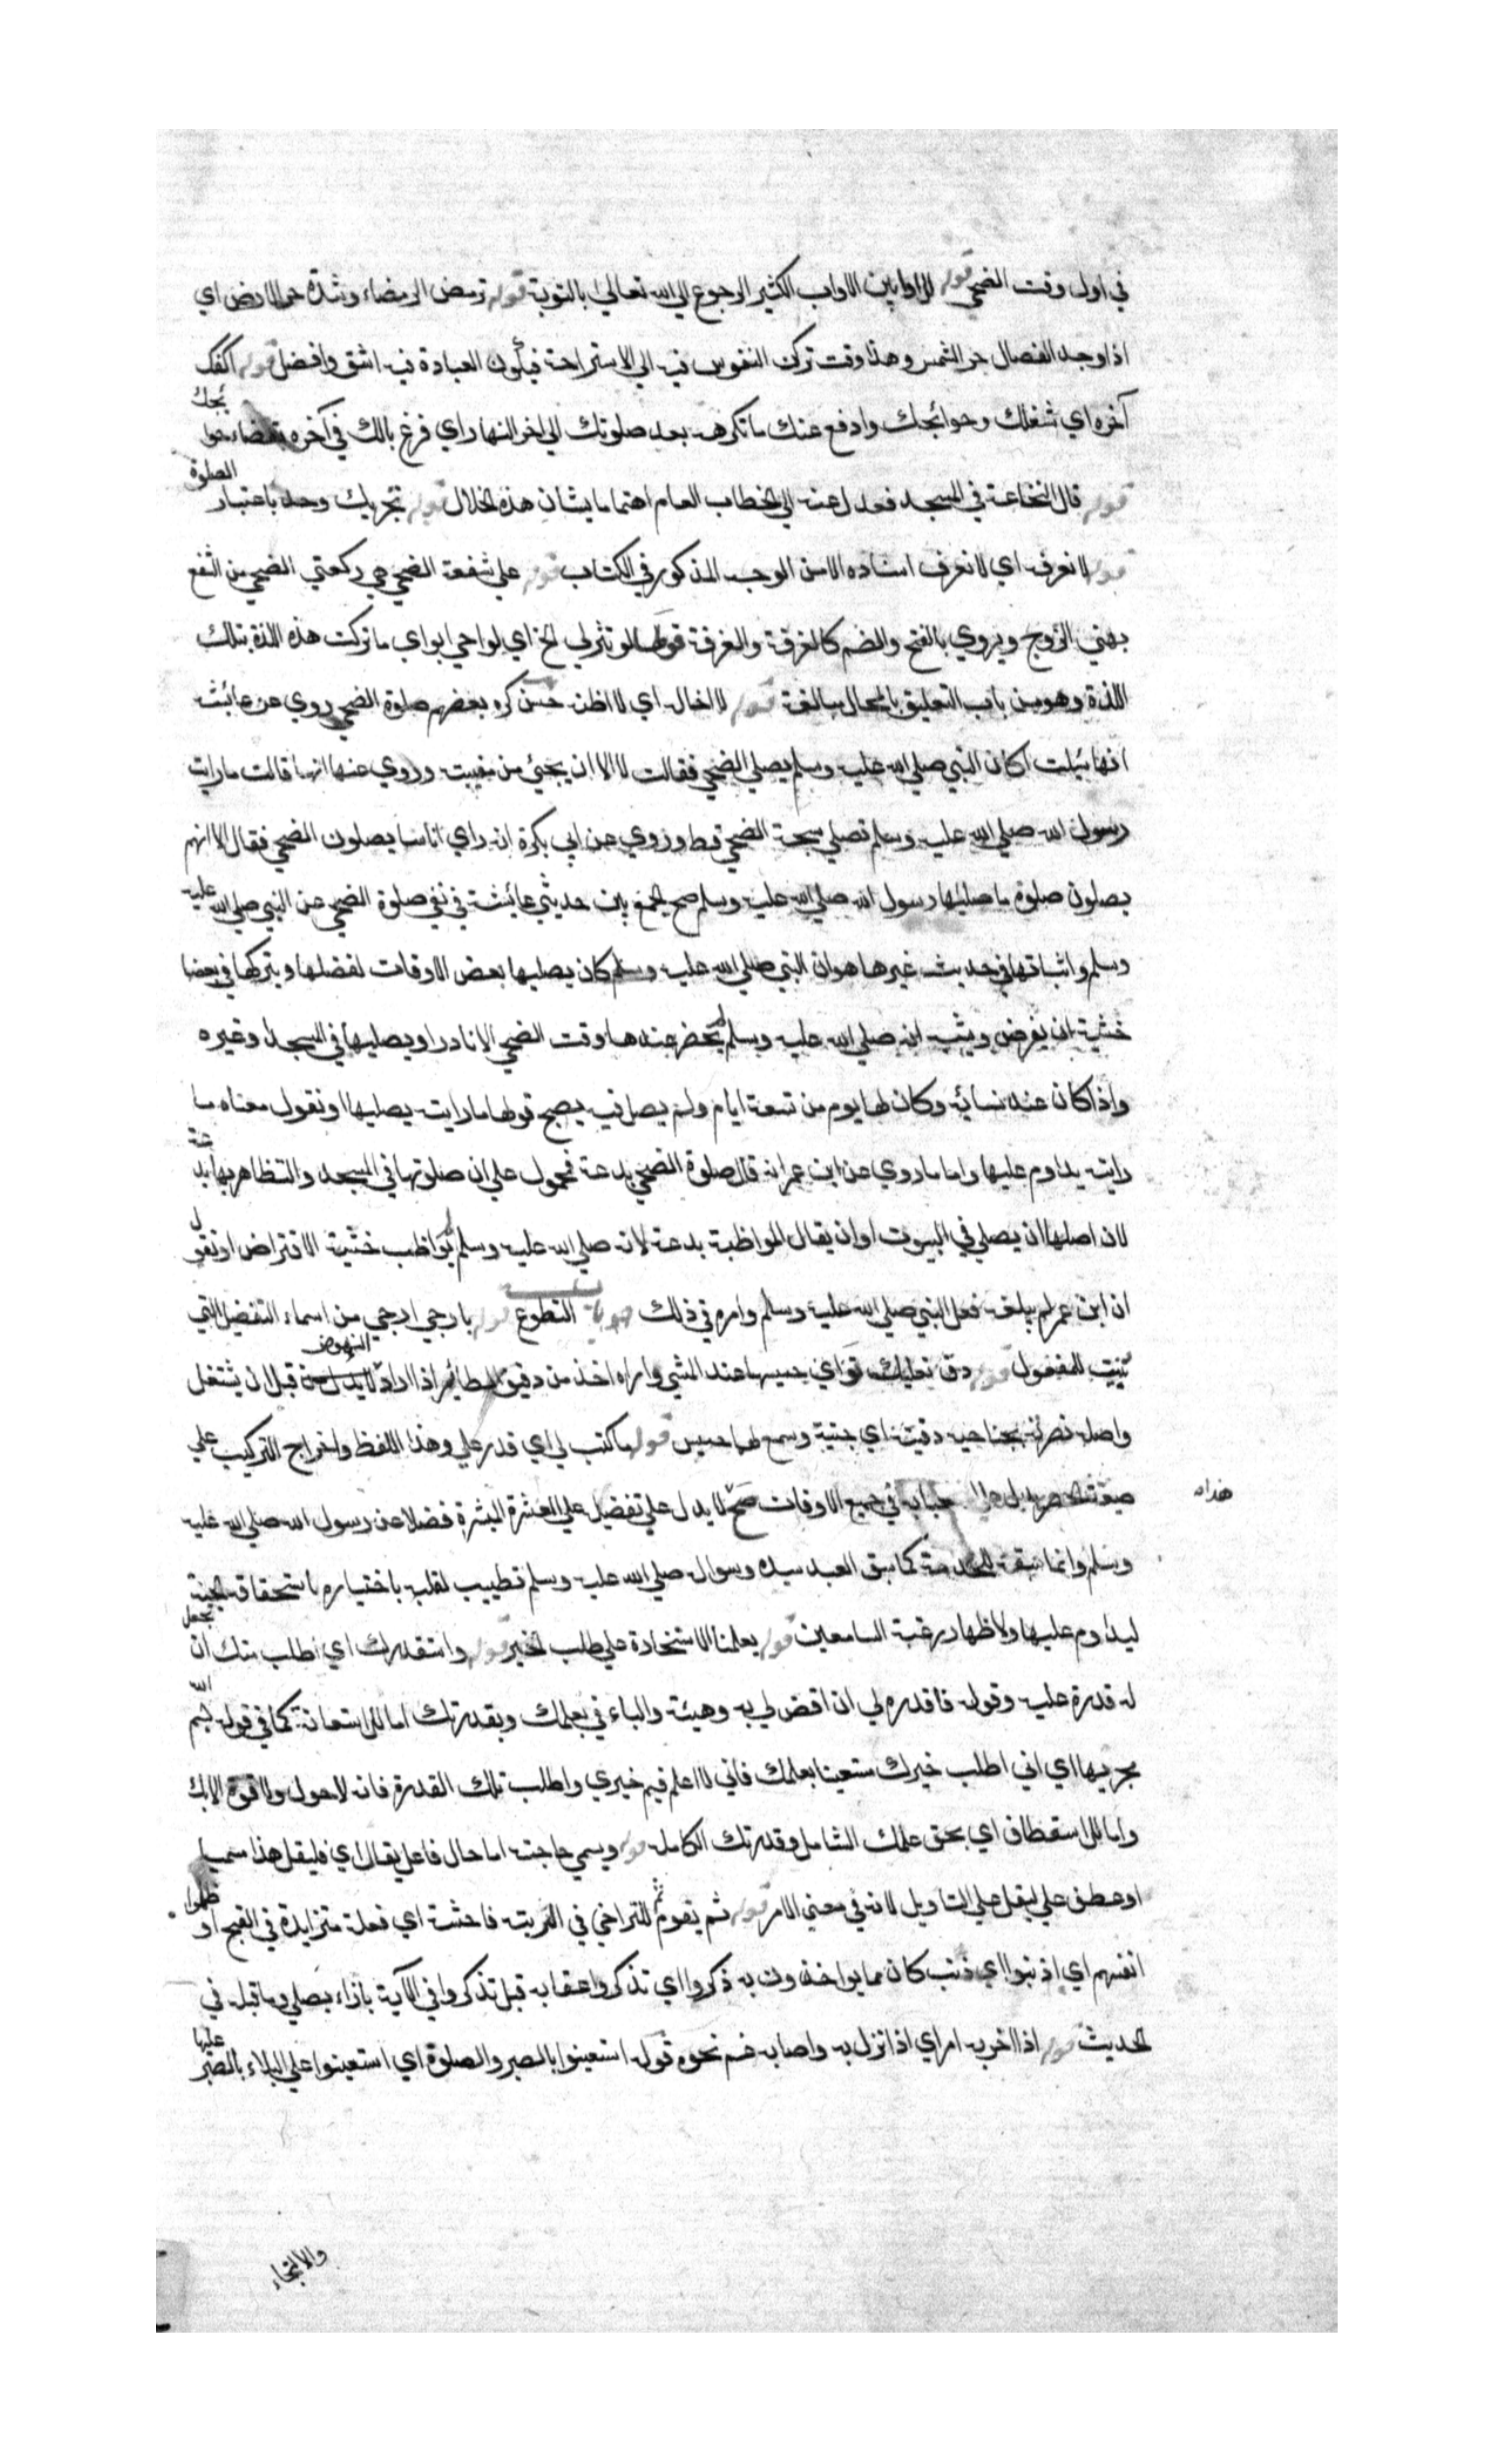 في اول وقت الضحي قوله الاوابين الاواب الكثير الرجوع الي الله تعالي بالتوبة قوله ترمض الرمضاء وشدة حر الارض اي
اذا وجد الفصال حر الشمس وهذا وقت تركن النفوس فيه الي الاستراحة فيكون العبادة فيه اشق وافضل قوله اكفك
آخره اي شغلك وحوائجك وادفع عنك ما تكرهه بعد صلوتك الي اخر النهار اي فرغ بالك في آخره بقضاء حوا ئجك
قوله قال النخاعة في المسجد فعدل عنه الي الخطاب العام اهتماما بشان هذه الخلال قوله تجزيك وحده باعتبار الصلوة
قوله لا نعرفه اي لا نعرف اسناده الا من الوجه المذكور في الكتاب قوله علي شفعة الضحي هي ركعتي الضحي من الشفع
بمعني الزوج ويروي بالفتح والضم كالغرفة والغرفة قولها لو نشر لي الخ اي لو احي ابواي ما تركت هذه اللذة بتلك
اللذة وهو من باب التعليق بالمحال مبالغة قوله لا اخال اي لا اظن كره بعضهم صلوة الضحي روي عن عائشة
انها سئلت اكان النبي صلي الله عليه وسلم يصلي الضحي فقالت لا الا ان يجيئ من مغيبه وروي عنها انها قالت ما رايت
رسول الله صلي الله عليه وسلم تصلي سبحة الضحي قط وروي عن ابي بكرة انه راي اناسا يصلون الضحي فقال الا انهم
يصلون صلوة ما صليها رسول الله صلي الله عليه وسلم صح الجمع بين حديثي عائشة في نفي صلوة الضحي عن النبي صلي الله عليه
وسلم واثباتها في حديث غيرها هو ان النبي صلي الله عليه وسلم كان يصليها بعض الاوقات لفضلها ويتركها في بعضها
خشية ان يفرض انه صلي الله عليه وسلم لم يحضر عندها وقت الضحي الا نادرا ويصليها في المسجد او غيره
واذا كان عند نسائه وكان لها يوم من تسعة ايام ولم يصل فيه يصح قولها ما رايته يصليها او نقول معناه ما
رايته يداوم عليها واما ما روي عن ابن عمر انه قال صلوة الضحي بدعة فمحمول علي ان صلوتها في المسجد والتظاهر بها بد عة
لان اصلها ان يصلي في البيوت او ان يقال المواظبة بدعة لانه صلي الله عليه وسلم لم يواظب خشية الافتراض او نقول
ان ابن عمر لم يبلغه فعل النبي صلي الله عليه وسلم وامره في ذلك باب التطوع قوله بارجي ارجي من اسماء التفضيل التي
للمفعول قوله دف نعليك اي حسيسها عند المشي واراه اخذ من دفيف الطائر اذا اراد النهوض قبل ان يشتغل
واصله ضربه بجناحيه دفيه اي جنبيه وسمع لهما حسيس قوله ما كتب لي اي قدر علي وهذا اللفظ واخراج التركيب علي
صيغة الحصر يدل علي في جميع الاوقات صح لا يدل علي تفضيله علي العشرة المبشرة فضلا عن رسول الله صلي الله عليه
هذا انه
وسلم وانما سبقه للخدمة كما سبق العبد سيده وسواله صلي الله عليه وسلم تطييب لقلبه باختياره باستحقاقه الجنة
ليداوم عليها ولاظهار رغبة السامعين قوله يعلمنا الاستخارة علي طلب الخير قوله واستقدرك اي اطلب منك ان تجعل
له قدرة عليه وقوله فاقدره لي ان اقض لي به وهيئه والباء في بعلمك وبقدرتك اما للاستعانة كما في قوله بسم الله
مجريها اي اني اطلب خيرك مستعينا بعلمك فاني لا اعلم فيم خيري واطلب تلك القدرة فانه لا حول ولا قوة الا بك
واما للاستعطاف اي بحق علمك الشامل وقدرتك الكاملة قوله ويسمي حاجته اما حال فاعل يقال اي فليقل هذا مسميا
او عطف علي ليقل علي التاويل لانه في معني الامر قوله ثم يقوم ثم للتراخي في الرتبة فاحشة اي فعلة متزايدة في القبح او ظلموا
انفسهم اي اذنبوا اي ذنب كان مما يواخذون به ذكروا اي تذكروا عقابه قبل تذكروا في الآية بازاء يصلي وما قبله في
الحديث قوله اذا احزبه امر اي اذا نزل به واصابه غم نحوه قوله استعينوا بالصبر والصلوة اي استعينوا علي البلاء بالصبر عليها
والالتجاء